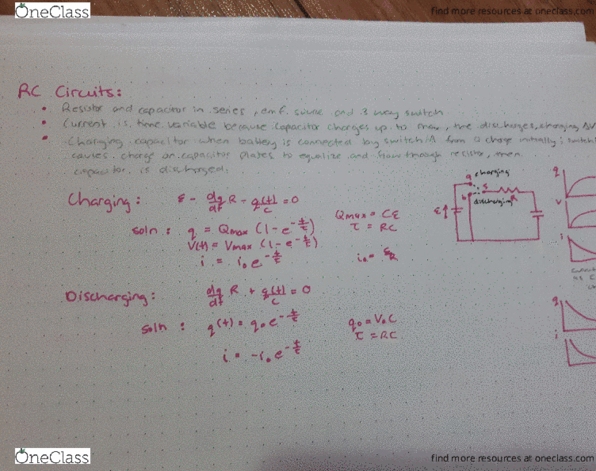 OneClass
find more resources at oneclass.com
RC Circuits:
• Resistor and capacitor in series, emf source and 3 way switch
• Current is time variable because capacitor charges up to max, the discharges, changing ΔV
• Charging capacitor when battery is connected by switch; from 0 charge initially; switch
causes charge on capacitor plates to equalize and flow through resistor, then
capacitor is discharged.
Charging: ε - dq/dt R - q(t)/c = 0
soln: q = Qmax (1 - e^-t/τ) Qmax = Cε
V(t) = Vmax (1 - e^-t/τ) τ = RC
i = i₀ e^-t/τ i₀ = ε/R
Discharging: dq/dt R + q(t)/c = 0
soln: q(t) = q₀ e^-t/τ q₀ = V₀C
τ = RC
i = -i₀ e^-t/τ
a charging
b
discharging
R
ε
q
v
i
q
i
OneClass
find more resources at oneclass.com